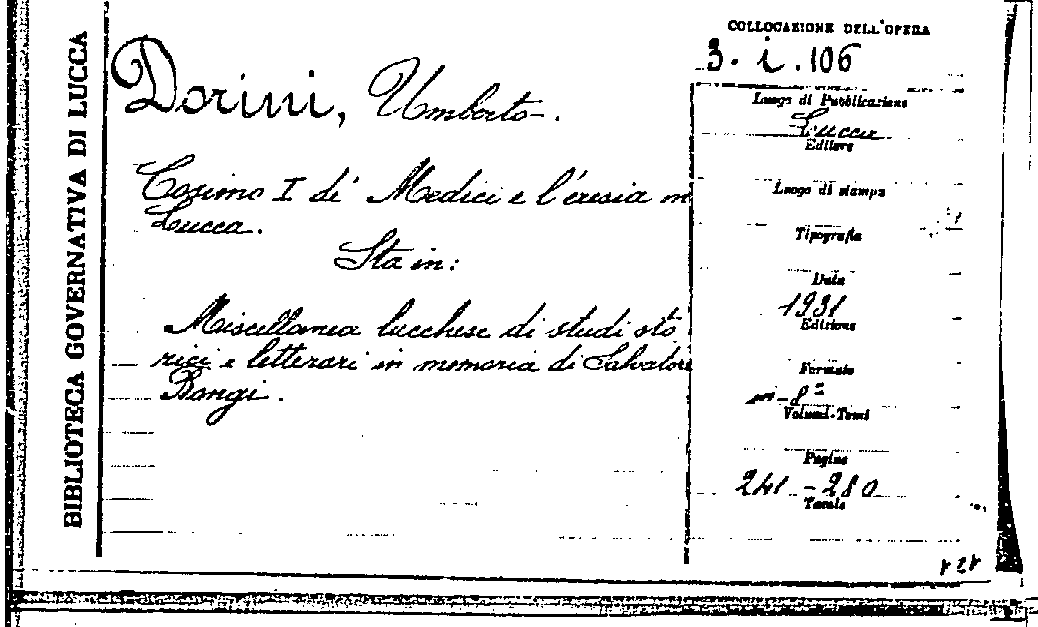 BIBLIOTECA GOVERNATIVA DI LUCCA
Dorini, Umberto.
Cosimo I de' Medici e l'eresia in
Lucca.
Sta in:
Miscellanea lucchese di studi sto
rici e letterari in memoria di Salvatore
Bongi.
COLLOCAZIONE DELL'OPERA
3. i. 106
Luogo di Pubblicazione
Lucca
Editore
Luogo di stampa
Tipografia
Data
1931
Edizione
Formato
in-8º
Volumi-Tomi
Pagine
241-280
Tavole